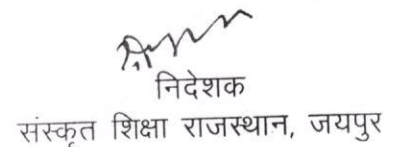 निदेशक
संस्कृत शिक्षा राजस्थान, जयपुर